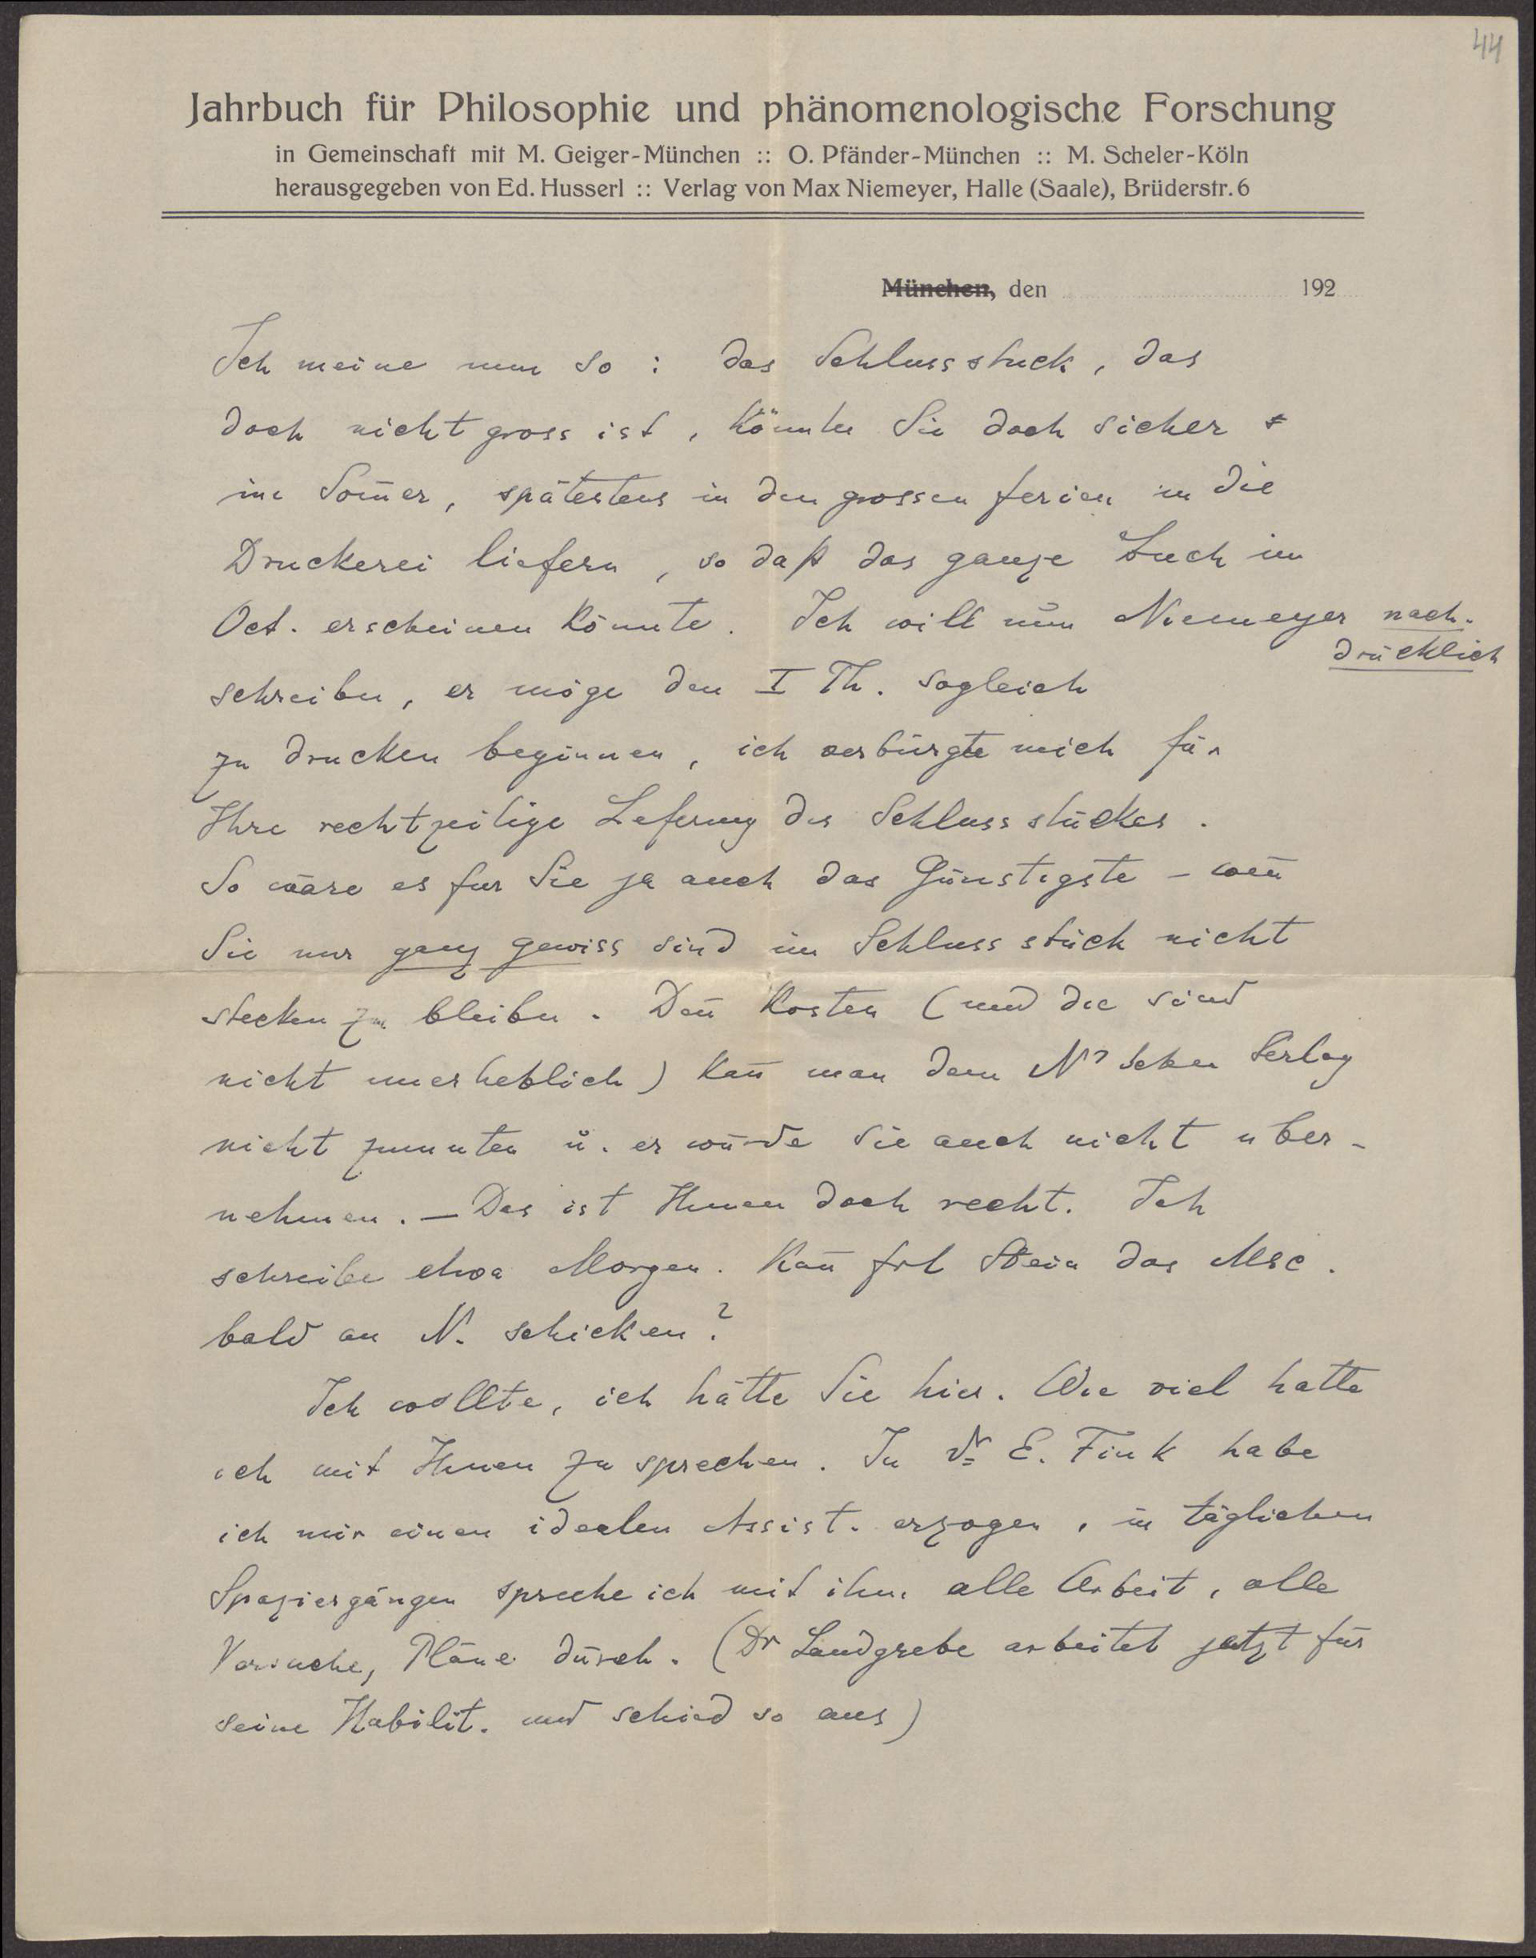 44
Jahrbuch für Philosophie und phänomenologische Forschung
in Gemeinschaft mit M. Geiger-München :: O. Pfänder-München :: M. Scheler-Köln
herausgegeben von Ed. Husserl :: Verlag von Max Niemeyer, Halle (Saale), Brüderstr. 6
München, den 192
Ich meine nun so : das Schlussstück, das
doch nicht gross ist, könnten Sie doch sicher
im Som̄er, spätestens in den grossen Ferien in die
Druckerei liefern, so daß das ganze Buch im
Oct. erscheinen könnte. Ich will nun Niemeyer nach-
drücklich
schreiben, er möge den I Th. sogleich
zu drucken beginnen, ich verbürgte mich für
Ihre rechtzeitige Lieferung des Schlussstückes.
So wäre es für Sie ja auch das Günstigste – wen̄
Sie nur ganz gewiss sind im Schlussstück nicht
stecken zu bleiben. Den̄ Kosten (und die sind
nicht unerheblich) kan̄ man dem N'schen Verlag
nicht zumuten u. er würde sie auch nicht über-
nehmen. – Das ist Ihnen doch recht. Ich
schreibe etwa Morgen. Kan̄ Frl Stein das Msc.
bald an N. schicken?
Ich wollte, ich hätte Sie hier. Wie viel hätte
ich mit Ihnen zu sprechen. In Dr E. Fink habe
ich mir einen idealen Assist. erzogen, in täglichen
Spaziergängen spreche ich mit ihm alle Arbeit, alle
Versuche, Pläne durch. (Dr Landgrebe arbeitet jetzt für
seine Habilit. und schied so aus)